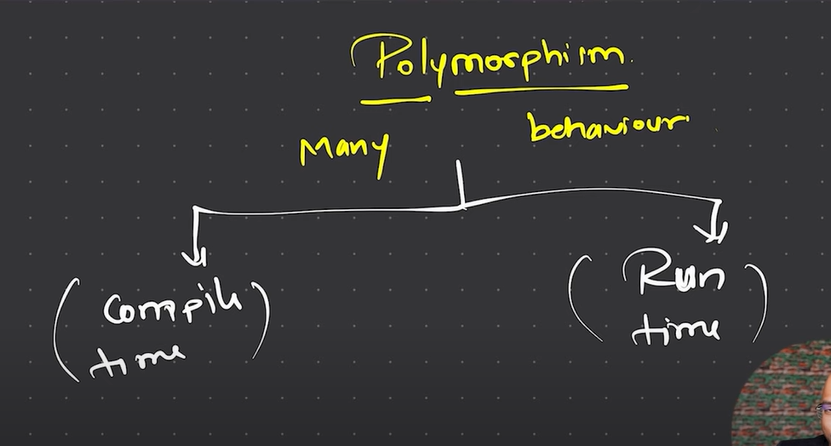 Polymorphism
Many behaviour
(Compile (Run
time) time)